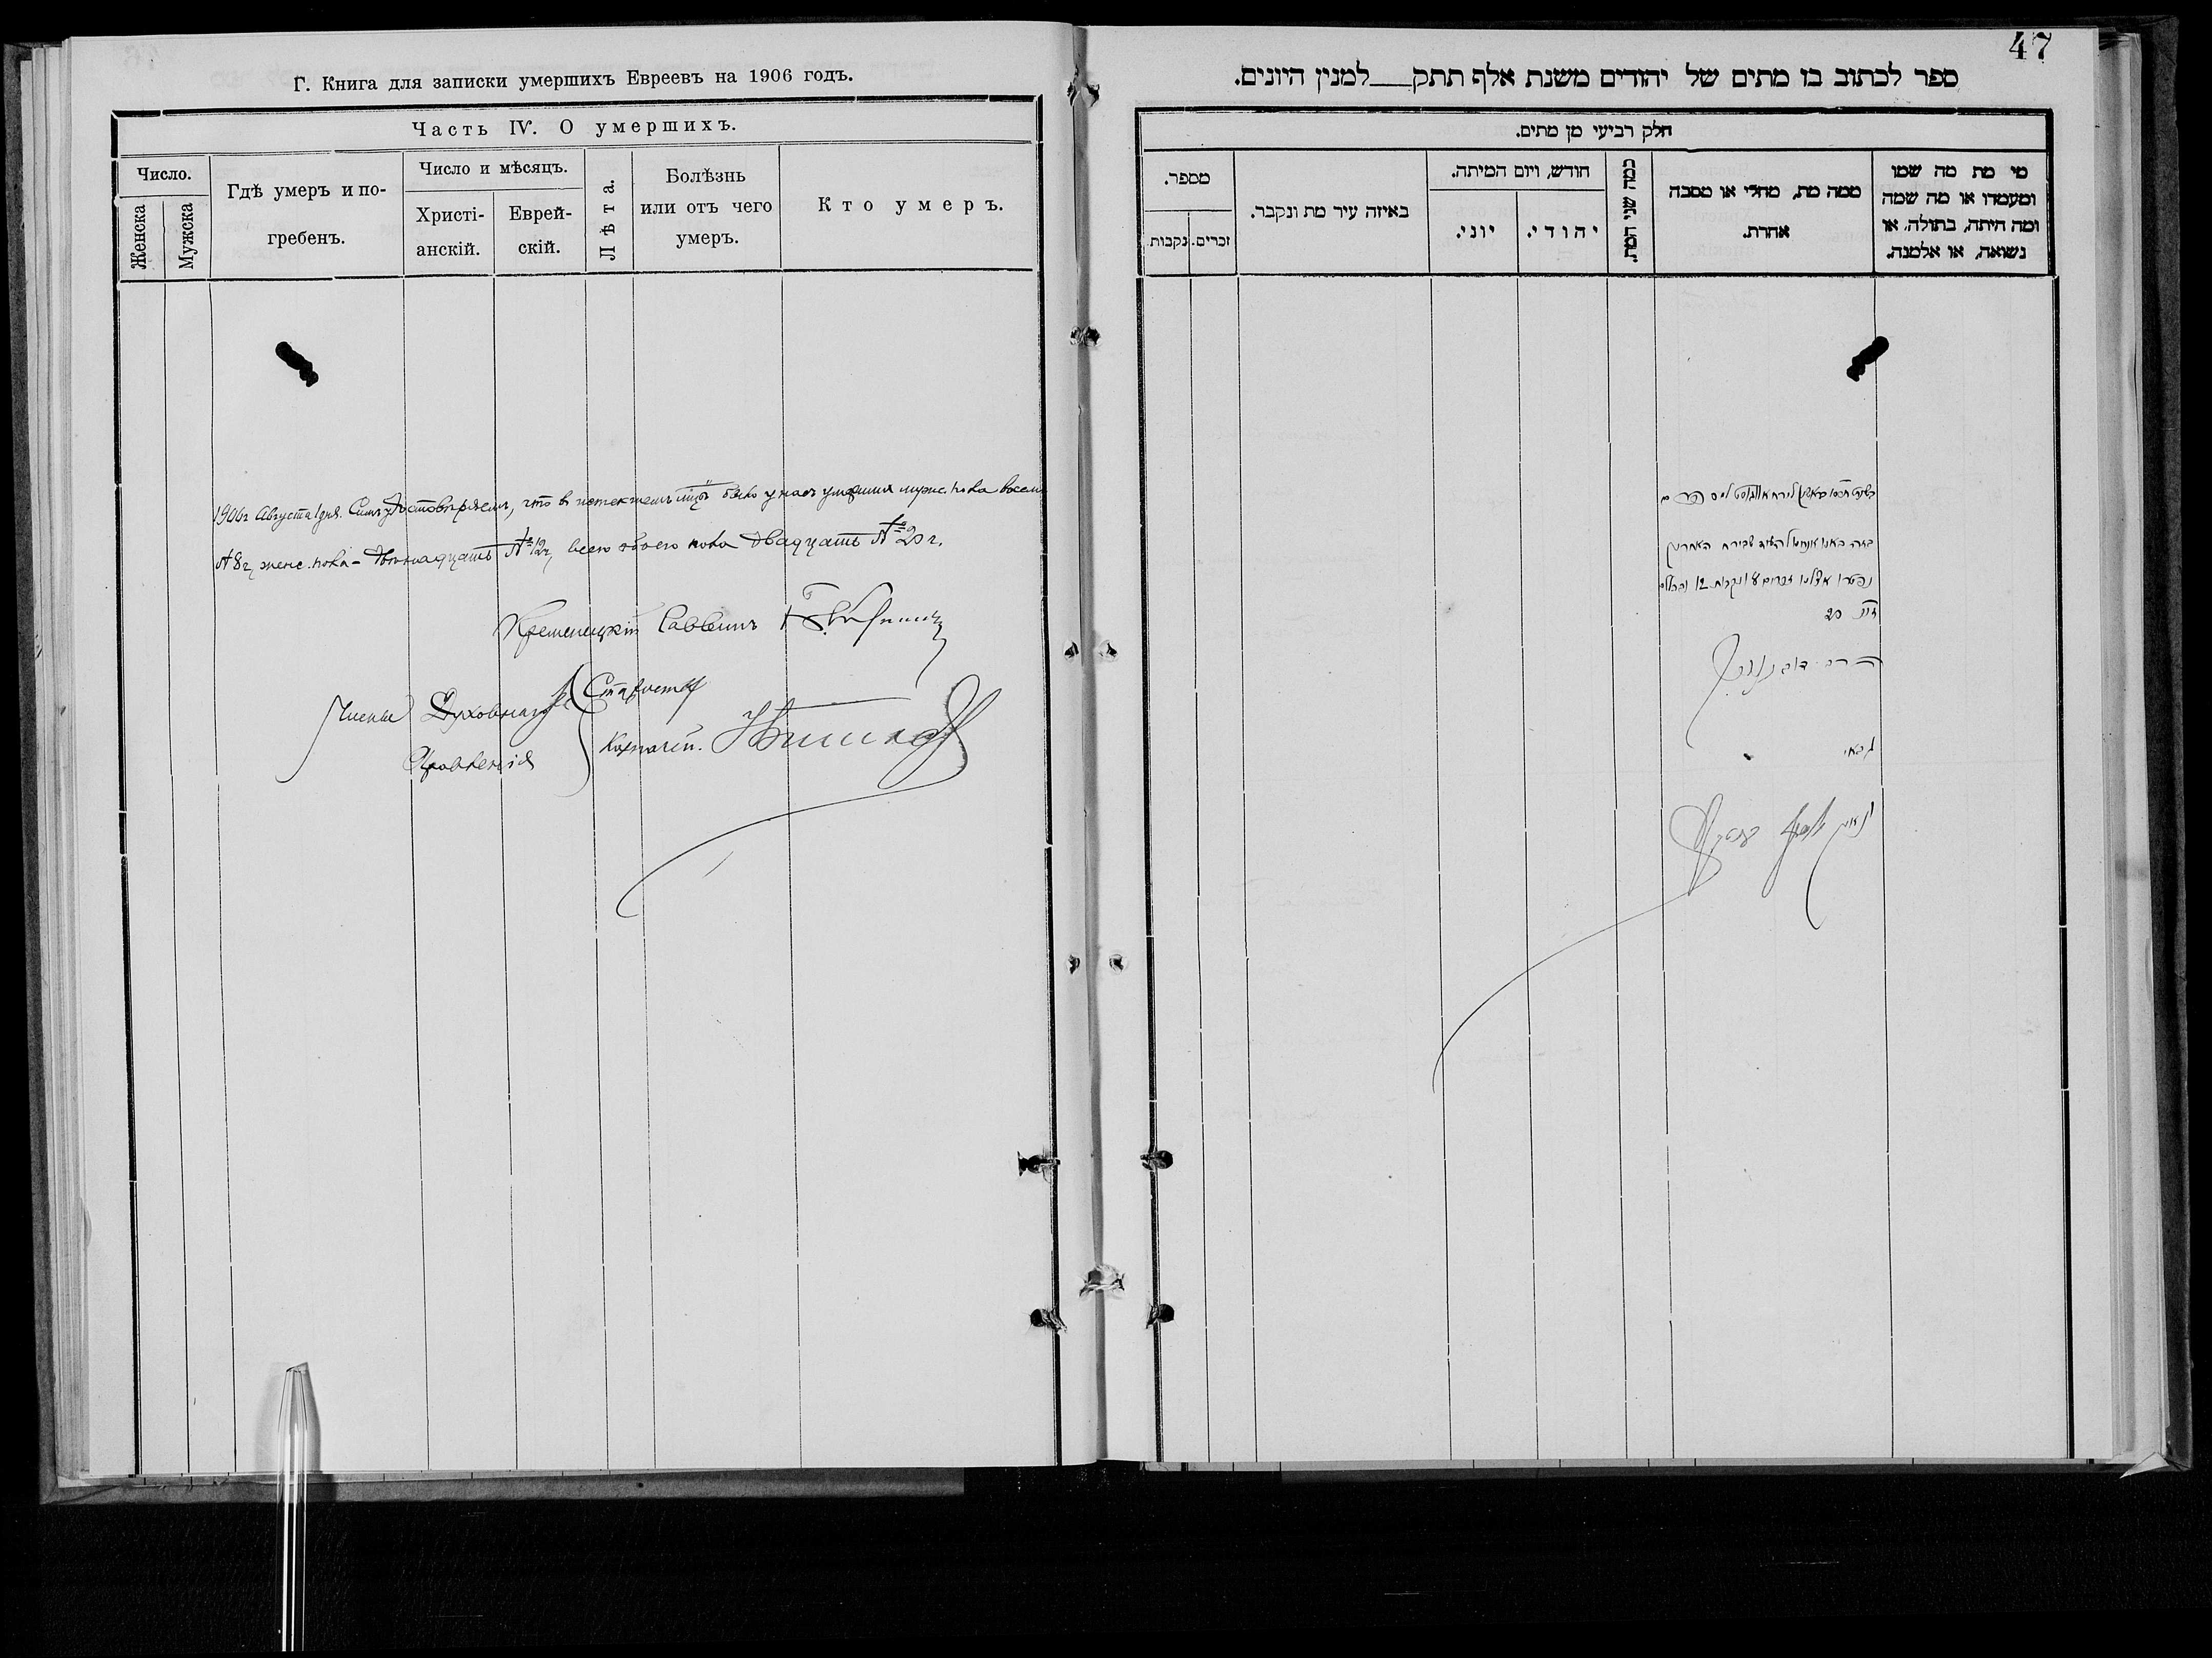 Г. Книга для записки умершихъ Евреевъ на 1906 годъ.
Часть IV. О умершихъ.
Число.
Женска
Мужска
Гдѣ умеръ и по-
гребенъ.
Число и мѣсяцъ.
Христі-
анскій.
Еврей-
скій.
Лѣта.
Болѣзнь
или отъ чего
умеръ.
Кто умеръ.
1906г Августа 1 дня. Симъ удостовѣряемъ, что в истекшемъ было у насъ умершихъ мужс. пола восемь
№ 8г, женс. пола – двѣнадцать № 12г, всего обоего пола двадцать № 20г.
Кременецкій Раввинъ
Члены Духовнаго
Правленія
Староста
Казначей.
47
ספר לכתוב בו מתים של יהודים משנת אלף תתק___למנין היונים.
חלק רביעי מן מתים.
מספר.
נקבות.
זכרים.
באיזה עיר מת ונקבר.
חודש, ויום המיתה.
יוני.
יהודי.
כמה שני המת.
ממה מת, מחלי או מסבה
אחרת.
מי מת מה שמו
ומעמדו או מה שמה
ומה היתה, בתולה, או
נשואה, או אלמנה.
נפטרו אצלנו זכרים 8 ונקבות 12
20
גבאי